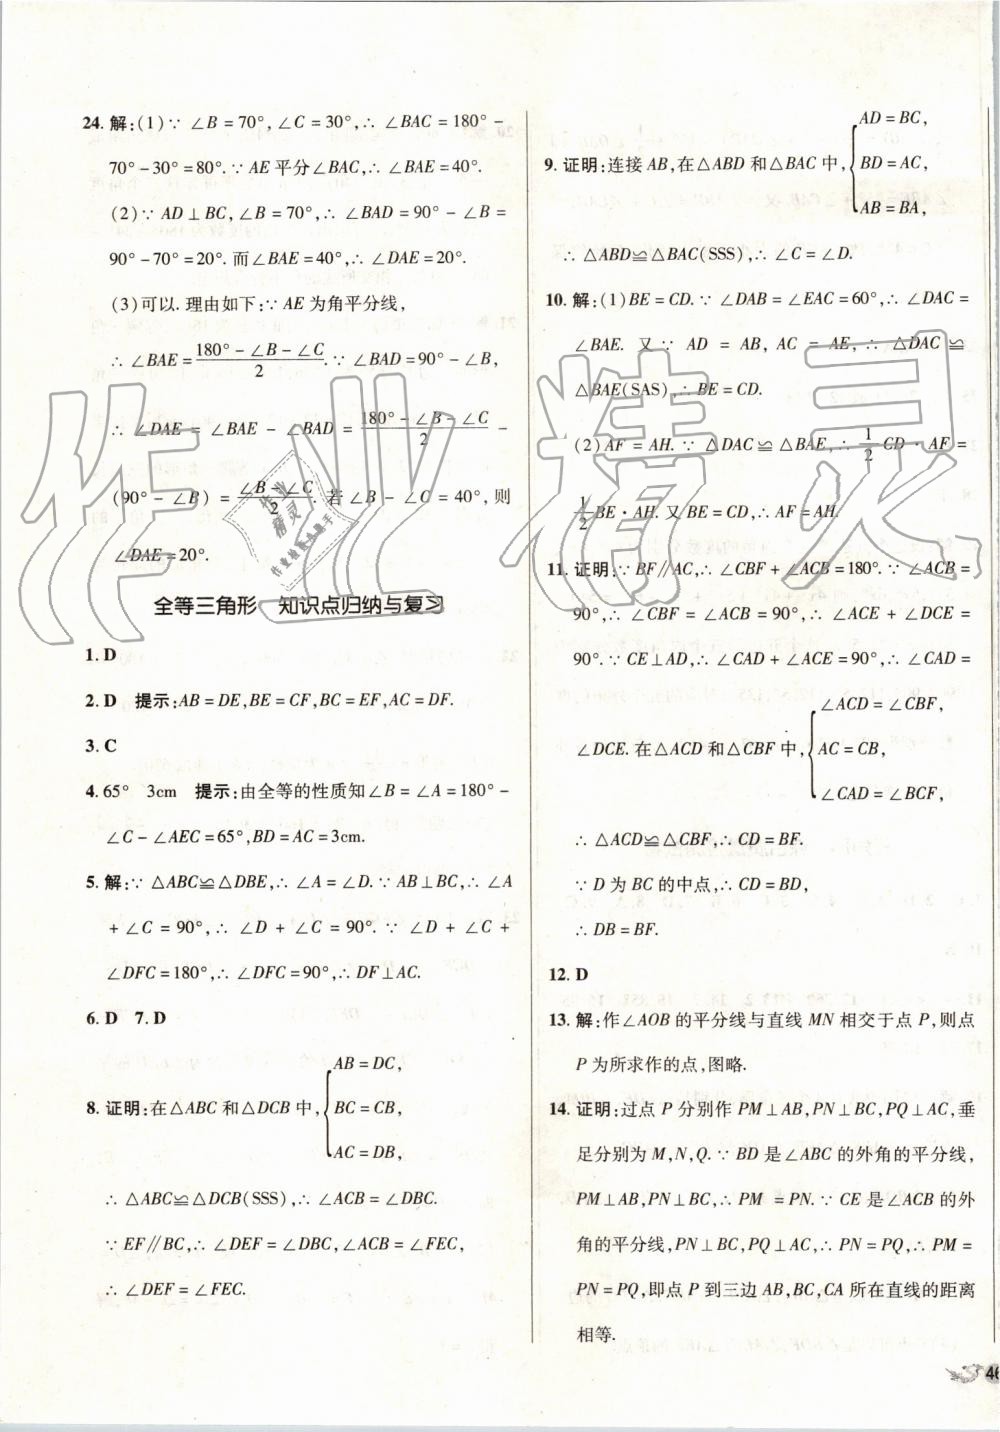 24. 解:(1)∵ ∠B = 70°,∠C = 30°,∴ ∠BAC = 180° -
70° - 30° = 80°. ∵ AE 平分∠BAC,∴ ∠BAE = 40°.
(2)∵ AD ⊥ BC, ∠B = 70°,∴ ∠BAD = 90° - ∠B =
90° - 70° = 20°. 而∠BAE = 40°,∴ ∠DAE = 20°.
(3)可以. 理由如下:∵ AE 为角平分线,
∴ ∠BAE = (180° - ∠B - ∠C)/2. ∵ ∠BAD = 90° - ∠B,
∴ ∠DAE = ∠BAE - ∠BAD = (180° - ∠B - ∠C)/2 -
(90° - ∠B) = (∠B - ∠C)/2. 若 ∠B - ∠C = 40°, 则
∠DAE = 20°.
全等三角形 知识点归纳与复习
1. D
2. D 提示:AB = DE,BE = CF,BC = EF,AC = DF.
3. C
4. 65° 3cm 提示:由全等的性质知∠B = ∠A = 180° -
∠C - ∠AEC = 65°,BD = AC = 3cm.
5. 解:∵ △ABC≌△DBE,∴ ∠A = ∠D. ∵ AB⊥BC,∴ ∠A
+ ∠C = 90°,∴ ∠D + ∠C = 90°. ∵ ∠D + ∠C +
∠DFC = 180°,∴ ∠DFC = 90°,∴ DF⊥AC.
6. D 7. D
AB = DC,
8. 证明:在△ABC 和△DCB 中, BC = CB,
AC = DB,
∴ △ABC≌△DCB(SSS),∴ ∠ACB = ∠DBC.
∵ EF∥BC,∴ ∠DEF = ∠DBC,∠ACB = ∠FEC,
∴ ∠DEF = ∠FEC.
AD = BC,
9. 证明:连接 AB,在△ABD 和△BAC 中, BD = AC,
AB = BA,
∴ △ABD≌△BAC(SSS),∴ ∠C = ∠D.
10. 解:(1)BE = CD. ∵ ∠DAB = ∠EAC = 60°,∴ ∠DAC =
∠BAE. 又 ∵ AD = AB, AC = AE, ∴ △DAC ≌
△BAE(SAS),∴ BE = CD.
(2)AF = AH. ∵ △DAC ≌ △BAE,∴ 1/2 CD · AF =
1/2 BE · AH. 又 BE = CD,∴ AF = AH.
11. 证明:∵ BF∥AC,∴ ∠CBF + ∠ACB = 180°. ∵ ∠ACB =
90°,∴ ∠CBF = ∠ACB = 90°,∴ ∠ACE + ∠DCE =
90°. ∵ CE⊥AD,∴ ∠CAD + ∠ACE = 90°,∴ ∠CAD =
∠ACD = ∠CBF,
∠DCE. 在△ACD 和△CBF 中, AC = CB,
∠CAD = ∠BCF,
∴ △ACD≌△CBF,∴ CD = BF.
∵ D 为 BC 的中点,∴ CD = BD,
∴ DB = BF.
12. D
13. 解:作∠AOB 的平分线与直线 MN 相交于点 P,则点
P 为所求作的点,图略.
14. 证明:过点 P 分别作 PM⊥AB,PN⊥BC,PQ⊥AC,垂
足分别为 M,N,Q. ∵ BD 是∠ABC 的外角的平分线,
PM⊥AB,PN⊥BC,∴ PM = PN. ∵ CE 是∠ACB 的外
角的平分线,PN⊥BC,PQ⊥AC,∴ PN = PQ,∴ PM =
PN = PQ,即点 P 到三边 AB,BC,CA 所在直线的距离
相等.
46
作业精灵
作业
精灵
作业检查小助手